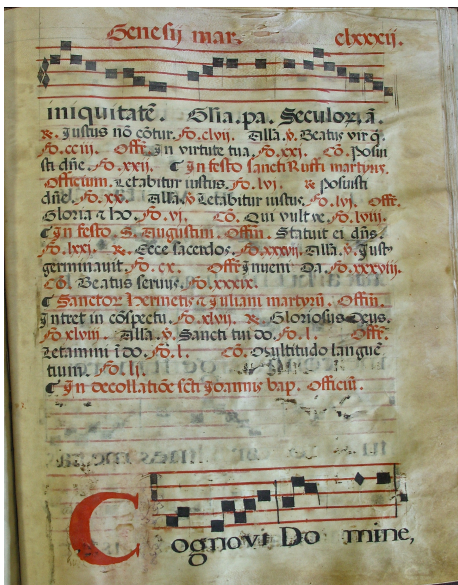 Genesij mar. clxxxij.
iniquitatē. Gl'ia. pa. Seculorū. ā.
℟. Justus nō cōtur. Fo. clvij. Alla. ℣. Beatus vir q̄.
Fo. cciij. Offr̄. In virtute tua. Fo. xxj. Cō. Posui
sti dn̄e. Fo. xxij. ¶ In festo sancti Ruffi martyris.
Officium. Letabitur iustus. Fo. lvj. ℟. Posuisti
dn̄e. Fo. xx. Alla. ℣. Letabitur iustus. Fo. lvj. Offr̄.
Gloria ⁊ ho. Fo. vj. Cō. Qui vult ve. Fo. lviij.
¶ In festo. S. Augustini. Offm̄. Statuit ei dn̄s.
Fo. lxxj. ℟. Ecce sacerdos. Fo. xxxvij. Alla. ℣. Justꝰ
germinauit. Fo. cx. Offr̄. Inueni Da. Fo. xxxviij.
Cō. Beatus seruus. Fo. xxxix.
¶ Sanctorū Hermetis ⁊ Juliani martyrū. Offm̄.
Intret in cōspectu. Fo. xlvij. ℟. Gloriosus Deus.
Fo. xlviij. Alla. ℣. Sancti tui do. Fo. l. Offr̄.
Letamini ī do. Fo. l. Cō. Multitudo languē
tium. Fo. lij.
¶ In decollatiōe sc̄ti Joannis bap. Officiū.
Cognovi Domine,